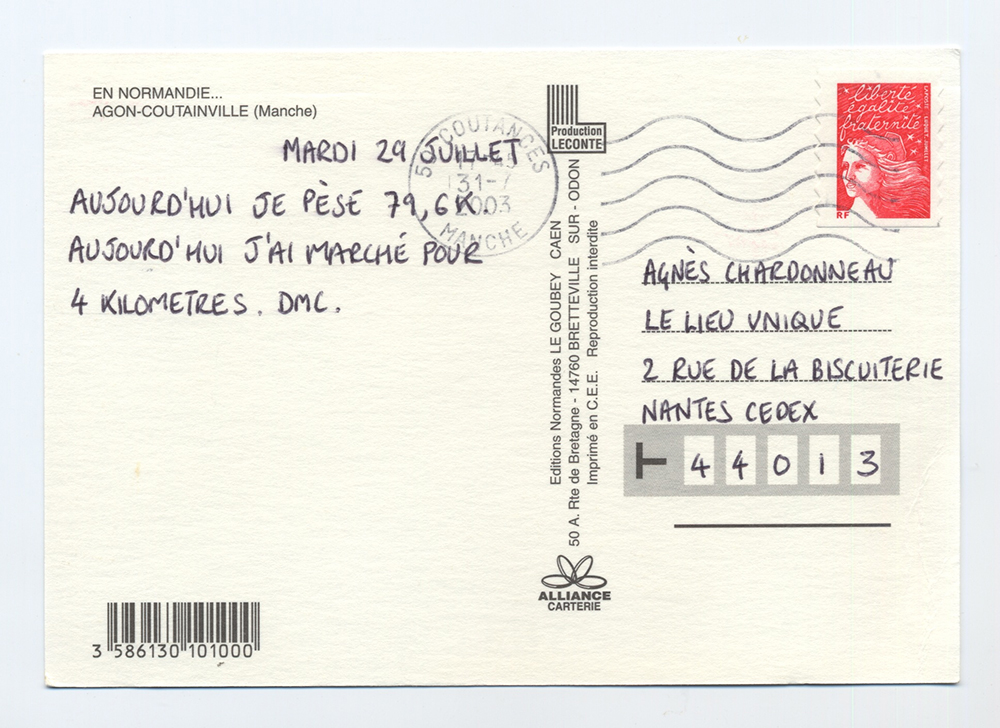 EN NORMANDIE...
AGON-COUTAINVILLE (Manche)
MARDI 29 JUILLET
AUJOURD'HUI JE PÈSE 79,6K.
AUJOURD'HUI J'AI MARCHÉ POUR
4 KILOMETRES. DMC.
3 586130 101000
Production
LECONTE
50 COUTANCES
31-7
2003
MANCHE
Editions Normandes LE GOUBEY CAEN
50 A. Rte de Bretagne - 14760 BRETTEVILLE SUR - ODON
Imprimé en C.E.E. Reproduction interdite
ALLIANCE
CARTERIE
liberté
égalité
fraternité
RF
LA POSTE
AGNÈS CHARDONNEAU
LE LIEU UNIQUE
2 RUE DE LA BISCUITERIE
NANTES CEDEX
44013